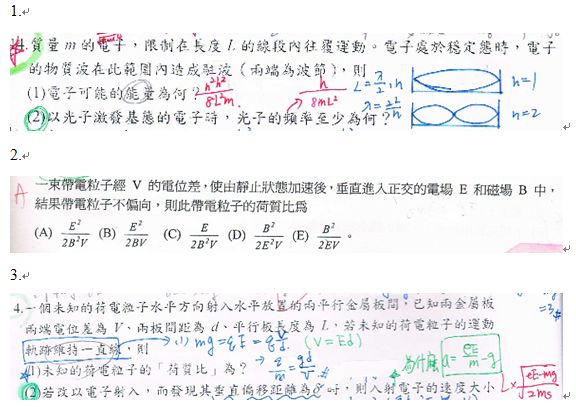 1.
質量 m 的電子，限制在長度 L 的線段內往覆運動。電子處於穩定態時，電子
的物質波在此範圍內造成駐波（兩端為波節），則
(1)電子可能的能量為何？ n²h²/8L²m h/8mL² L=λ/2·n λ=2L/n n=1
(2)以光子激發基態的電子時，光子的頻率至少為何？ n=2
2.
A 一束帶電粒子經 V 的電位差，使由靜止狀態加速後，垂直進入正交的電場 E 和磁場 B 中，
結果帶電粒子不偏向，則此帶電粒子的荷質比為
(A) E²/2B²V (B) E²/2BV (C) E/2B²V (D) B²/2E²V (E) B²/2EV 。
3.
4.一個未知的荷電粒子水平方向射入水平放置的兩平行金屬板間，已知兩金屬板 =3
兩端電位差為 V、兩板間距為 d、平行板長度為 L，若未知的荷電粒子的運動
軌跡維持一直線，則 (1) mg=qE=qV/d (V=Ed)
(1)未知的荷電粒子的「荷質比」為？ → q/m=gd/V 為什麼 a=eE/m-g
(2)若改以電子射入，而發現其垂直偏移距離為 δ 時，則入射電子的速度大小 L×√eE-mg/2mδ